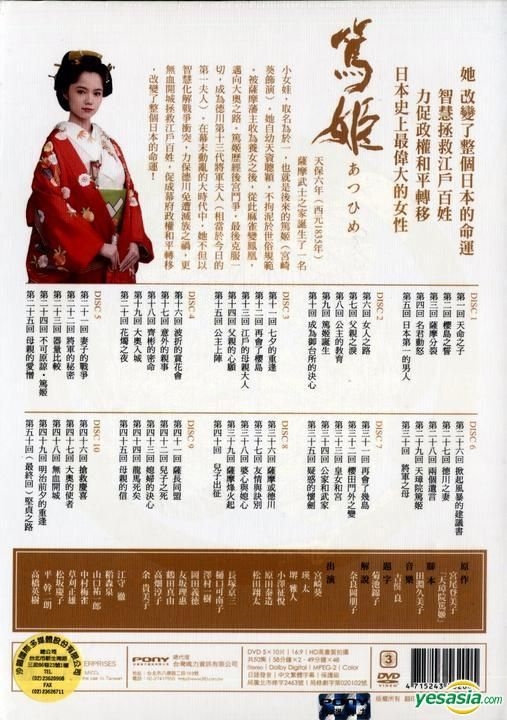 她 改變了整個日本的命運
智慧拯救江戶百姓
力促政權和平轉移
日本史上最偉大的女性
篤姬
あつひめ
天保六年(西元1835年)
薩摩武士之家誕生了一名
小女娃,取名為於一,也就是後來的篤姬(宮崎
葵飾演)。她自幼天資聰穎,不拘泥於世俗規範
。被薩摩藩主收為養女之後,從此麻雀變鳳凰,
邁向大奧之路。篤姬歷經後宮鬥爭,最後克服一
切,成為德川第十三代將軍夫人(相當於今日的
第一夫人)。在幕末動亂的大時代中,她不但以
智慧化解戰爭衝突,力保德川免遭滅族之禍,更
無血開城拯救江戶百姓,促成幕府政權和平轉移
,改變了整個日本的命運!
DISC 1
第一回 天命之子
第二回 櫻島之誓
第三回 薩摩分裂
第四回 名君動怒
第五回 日本第一的男人
DISC 2
第六回 女人之路
第七回 父親之淚
第八回 公主的教育
第九回 篤姬誕生
第十回 成為御台所的決心
DISC 3
第十一回 七夕的重逢
第十二回 再會了櫻島
第十三回 江戶的母親大人
第十四回 父親的心願
第十五回 公主上陣
DISC 4
第十六回 波折的賞花會
第十七回 意外的親事
第十八回 齊彬的密命
第十九回 大奧入城
第二十回 花燭之夜
DISC 5
第二十一回 妻子的戰爭
第二十二回 將軍的秘密
第二十三回 器量比較
第二十四回 不可原諒,篤姬
第二十五回 母親的愛憎
DISC 6
第二十六回 掀起風暴的建議書
第二十七回 德川之妻
第二十八回 兩個遺言
第二十九回 天璋院篤姬
第三十回 將軍之母
DISC 7
第三十一回 再會了幾島
第三十二回 櫻田門外之變
第三十三回 皇女和宮
第三十四回 公家和武家
第三十五回 疑惑的懷劍
DISC 8
第三十六回 薩摩或德川
第三十七回 友情與訣別
第三十八回 婆心與媳心
第三十九回 薩摩烽火起
第四十回 兒子出征
DISC 9
第四十一回 薩長同盟
第四十二回 兒子之死
第四十三回 媳婦的決心
第四十四回 龍馬死矣
第四十五回 母親的信
DISC 10
第四十六回 搶救慶喜
第四十七回 大奧的使者
第四十八回 無血開城
第四十九回 明治前夕的重逢
第五十回(最終回)堅貞之路
原作 宮尾登美子
「天璋院篤姬」
腳本 田淵久美子
音樂 吉俣 良
題字 菊池錦子
解說 奈良岡朋子
出演 宮崎葵
瑛 太
堺 雅人
小澤征悅
原田泰造
松田翔太
長塚京三
樋口可南子
澤村一樹
岡田義德
友坂理惠
鶴田真由
高畑淳子
余 貴美子
江守 徹
稻森泉
山口祐一郎
中村梅雀
草刈正雄
松坂慶子
平 幹二朗
高橋英樹
沙鷗國際多媒體股份有限公司
總公司
台北市新生南路
三段86巷23號1樓
(02)23620998
FAX:
(02)23626711
ERPRISES
PONY
總代理
台灣鴻力資訊有限公司
DVD 5×10片 | 16:9 | HD高畫質拍攝
共50集 | 58分鐘×2、49分鐘×48
Stereo | Dolby Digital | MPEG-2 | Color
日語發音 | 中文繁體字幕 | 保護級
局廣北市錄字2463號 | 局錄影字第020102號
3
DVD
VIDEO
版權所有
yesasia.com